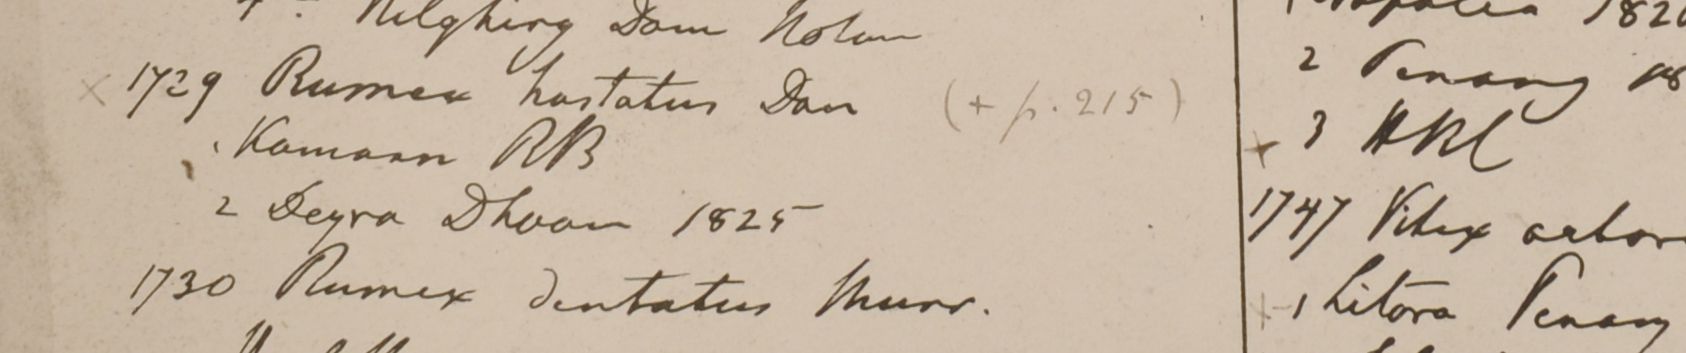 Nilghiry Dom Noton
1729 Rumex hastatus Don (+ p. 215)
Kamaon RB
2 Deyra Dhoon 1825
1730 Rumex dentatus Murr.
182
2 Penang
3 HBC
1747 Vitex arbor
1 Litora Penang